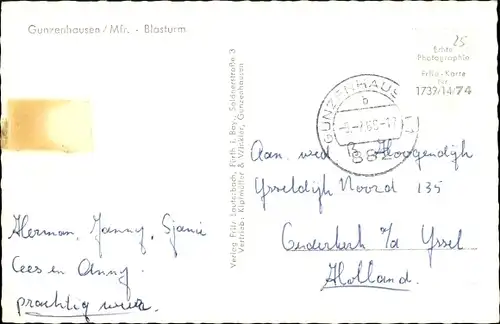 Gunzenhausen/Mfr. - Blasturm
25
Echte
Photographie
Fritz-Karte
Nr
1737/14/74
GUNZENHAUS
b
882
Verlag Fritz Lauterbach, Fürth i. Bay., Soldnerstraße 3
Vertrieb: Kipfmüller & Winkler, Gunzenhausen
Aan wed B. Hoogendijk
Ysseldijk Noord 135
Ouderkerk a/d Yssel
Holland.
Herman, Janny, Sjanie
Cees en Anny.
prachtig weer.